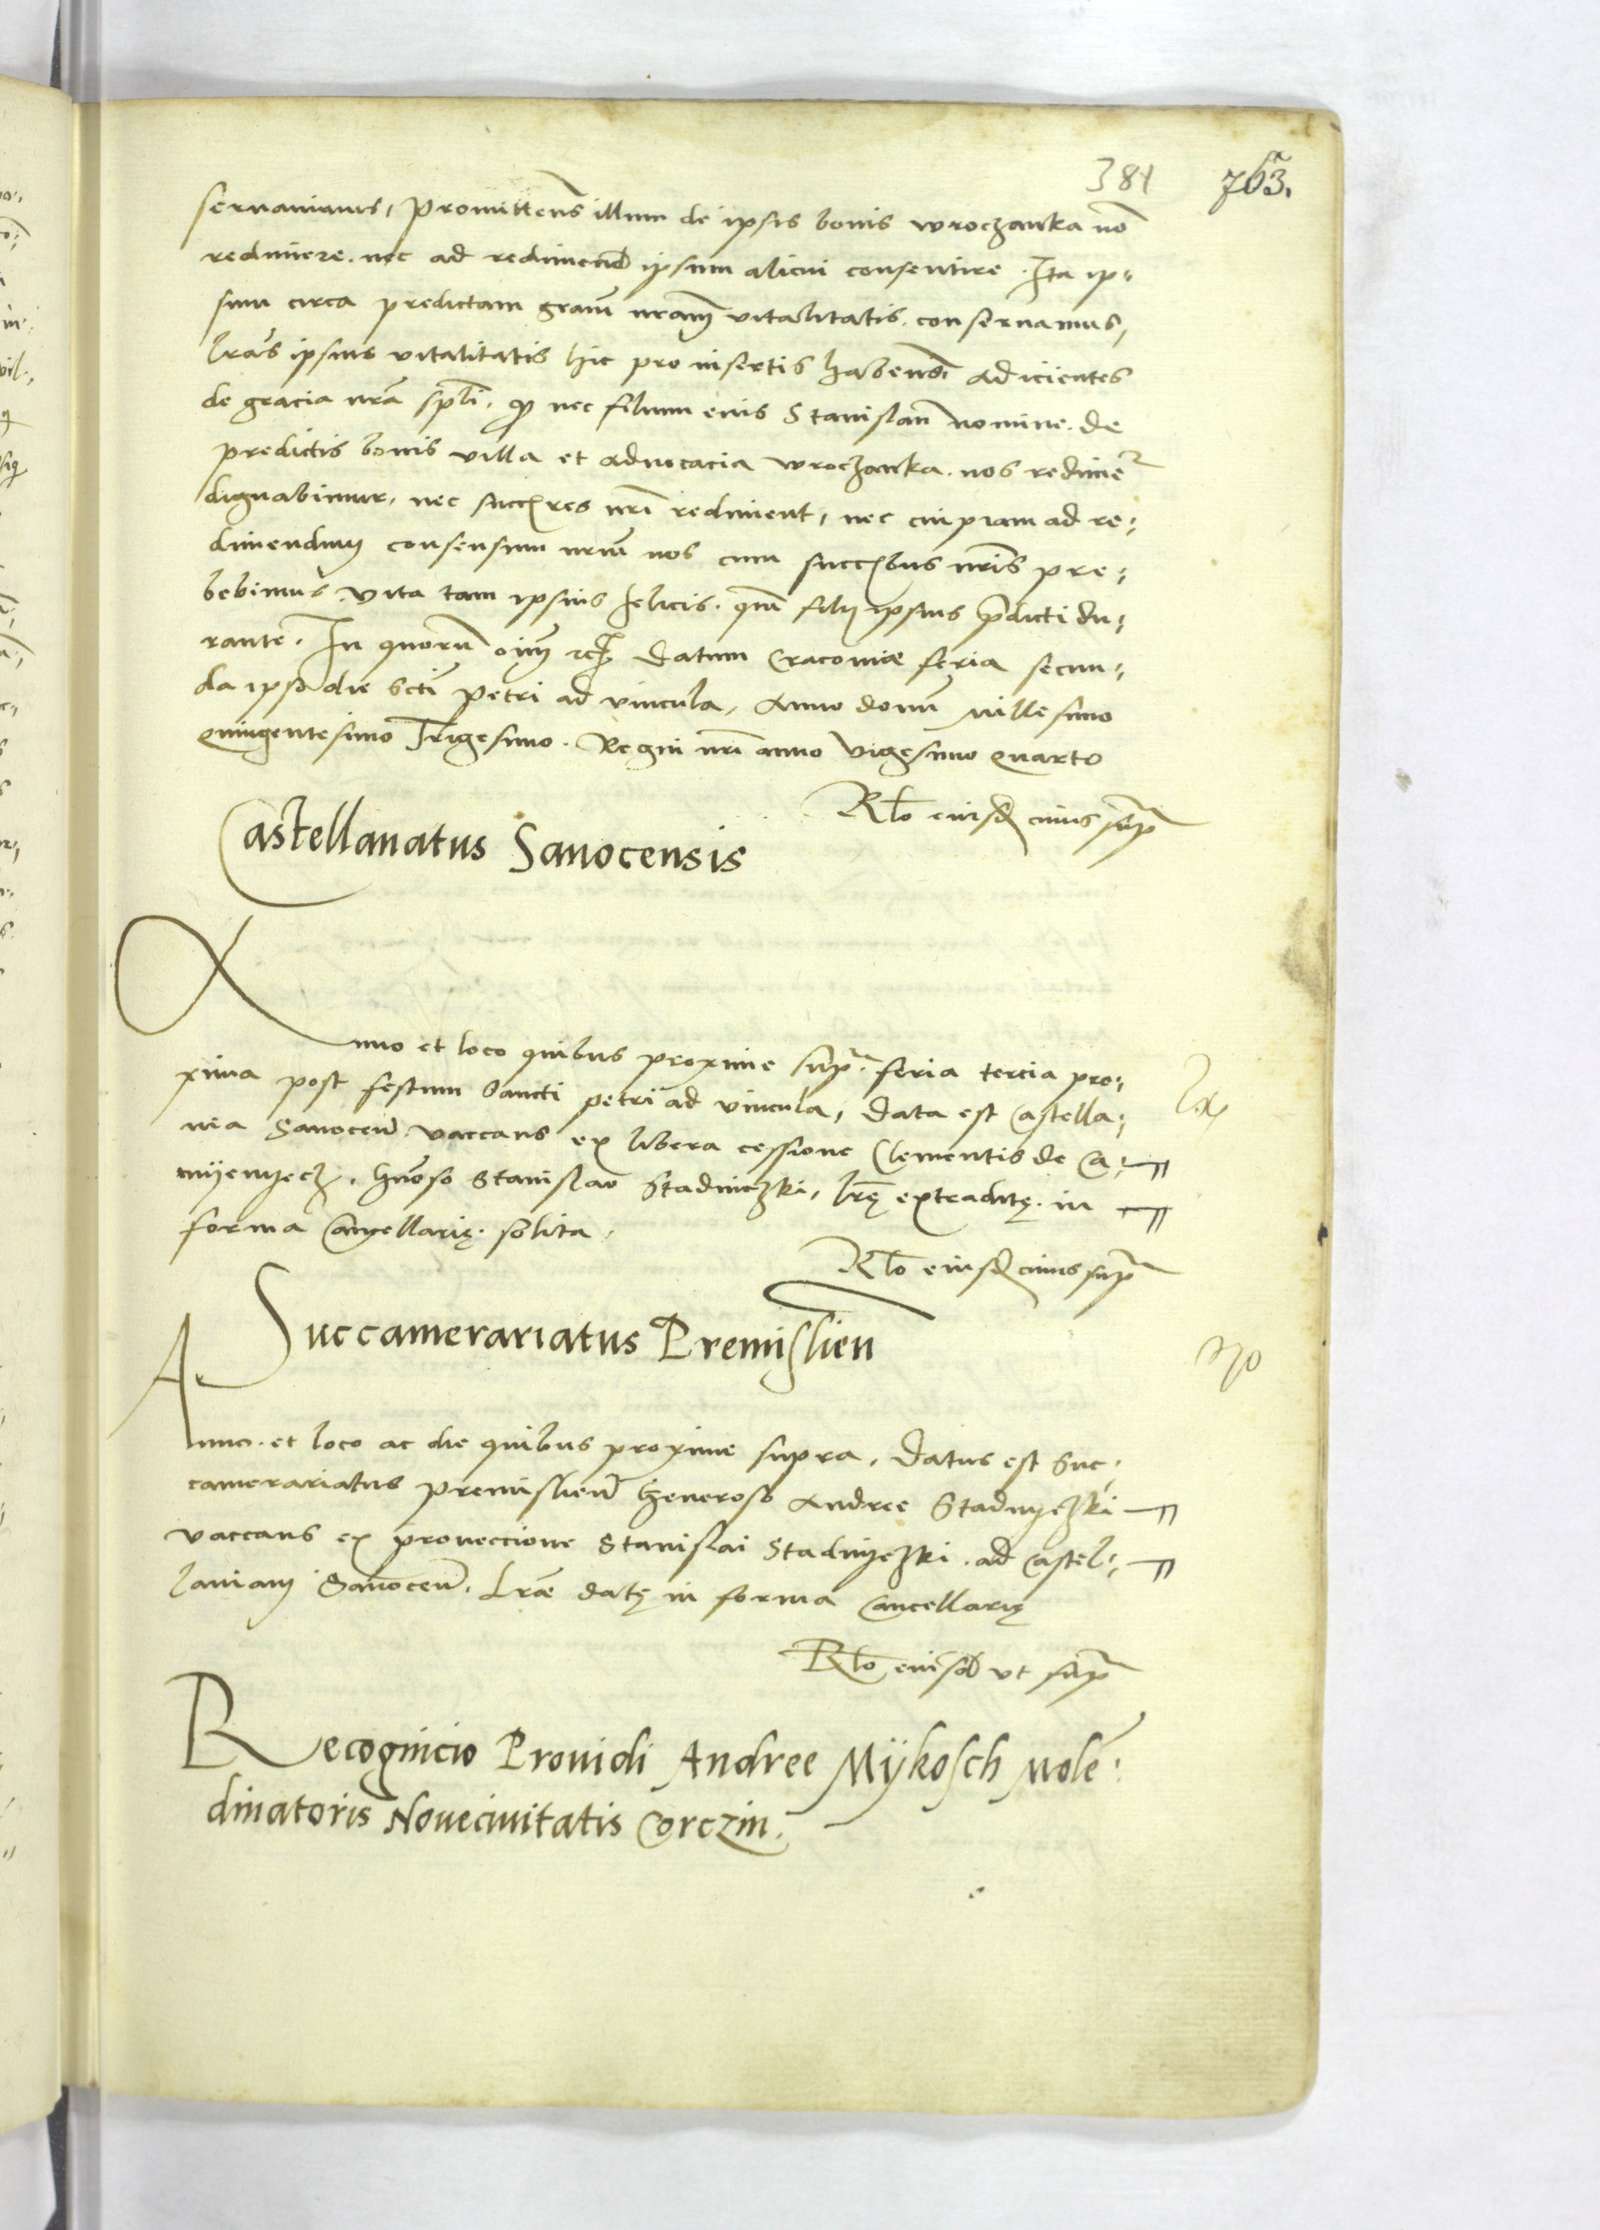 381 763.
seruauimus, Promittens illum de ipsis bonis wroczanka nō
redimere. nec ad redimend ipsum alicui consentire. Ita ip:
sum circa predictam gram nram vitalitatis. conseruamus,
lras ipsius vitalitatis hic pro insertis habens. adicientes
de gracia nra spli. q nec filium eius Stanislaū nomine. de
predictis bonis villa et aduocacia wroczanka. nos redimer
dignabimur, nec succres nri rediment, nec cuipiam ad re:
dimendum consensum nrum nos cum succbus nris pre:
bebimus vita tam ipsius felicis. quā filij ipsius pdicti du:
rante. In quorū oium rc Datum Cracouiæ feria secun:
da ipso die scti Petri ad vincula, Anno domī millesimo
Quingentesimo Trigesimo. Regni nri anno Vigesimo quarto
Rlo eiusd cuius sup
Castellanatus Sanocensis
Anno et loco quibus proxime supª. feria tercia pro:
xima post festum Sancti petri ad vincula, Data est Castella:
nia Sanoceń. vaccans ex libera cessione Clementis de Ca:
myenyecz, gnoso Stanislao Stadniczki, lrę extraditę. in
forma Cancellarię. solita.
Rlo eiusd cuius sup
Succamerariatus Premislien
Anno. et loco ac die quibus proxime supra, Datus est Suc:
camerariatus premislień Generoso Andree Stadnyczki
vaccans ex proueccione Stanislai Stadnyczki. ad Castel:
laniam Sanoceń. Lræ datę in forma Cancellarię
Rlo eiusd vt sup
Recognicio Prouidi Andree Mÿkosch Molē:
dinatoris Noueciuitatis Corczin.